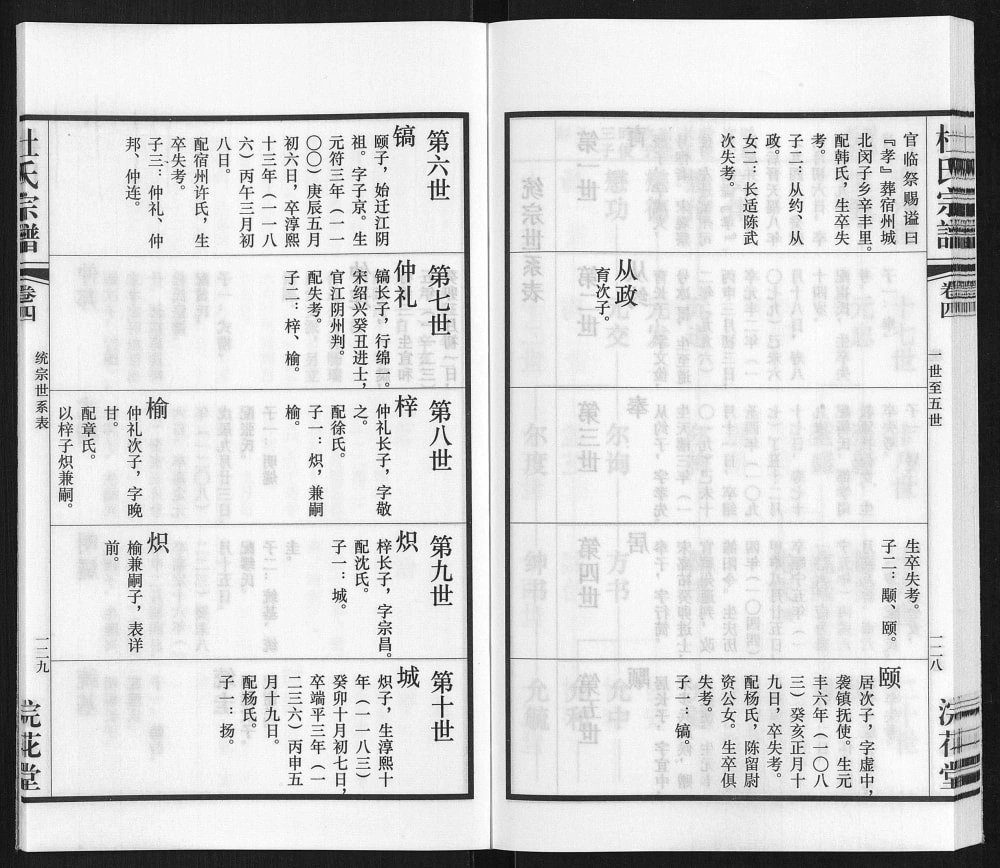 杜氏宗谱
卷四
一世至五世
一二八
浣花堂
官临祭赐谥曰
『孝』葬宿州城
北闵子乡辛丰里。
配韩氏，生卒失
考。
子二：从约、从
政。
女二：长适陈武
次失考。
从政
育次子。
生卒失考。
子二：颙、颐。
颐
居次子，字虚中，
袭镇抚使。生元
丰六年（一〇八
三）癸亥正月十
九日，卒失考。
配杨氏，陈留尉
资公女。生卒俱
失考。
子一：镐。
第六世
镐
颐子，始迁江阴
祖。字子京。生
元符三年（一一
〇〇）庚辰五月
初六日，卒淳熙
十三年（一一八
六）丙午三月初
八日。
配宿州许氏，生
卒失考。
子三：仲礼、仲
邦、仲连。
第七世
仲礼
镐长子，行绵一。
宋绍兴癸丑进士，
官江阴州判。
配失考。
子二：梓、榆。
第八世
梓
仲礼长子，字敬
之。
配徐氏。
子一：炽，兼嗣
榆。
榆
仲礼次子，字晚
甘。
配章氏。
以梓子炽兼嗣。
第九世
炽
梓长子，字宗昌。
配沈氏。
子一：城。
炽
榆兼嗣子，表详
前。
第十世
城
炽子，生淳熙十
年（一一八三）
癸卯十月初七日，
卒端平三年（一
二三六）丙申五
月十九日。
配杨氏。
子一：扬。
杜氏宗谱
卷四
统宗世系表
一二九
浣花堂